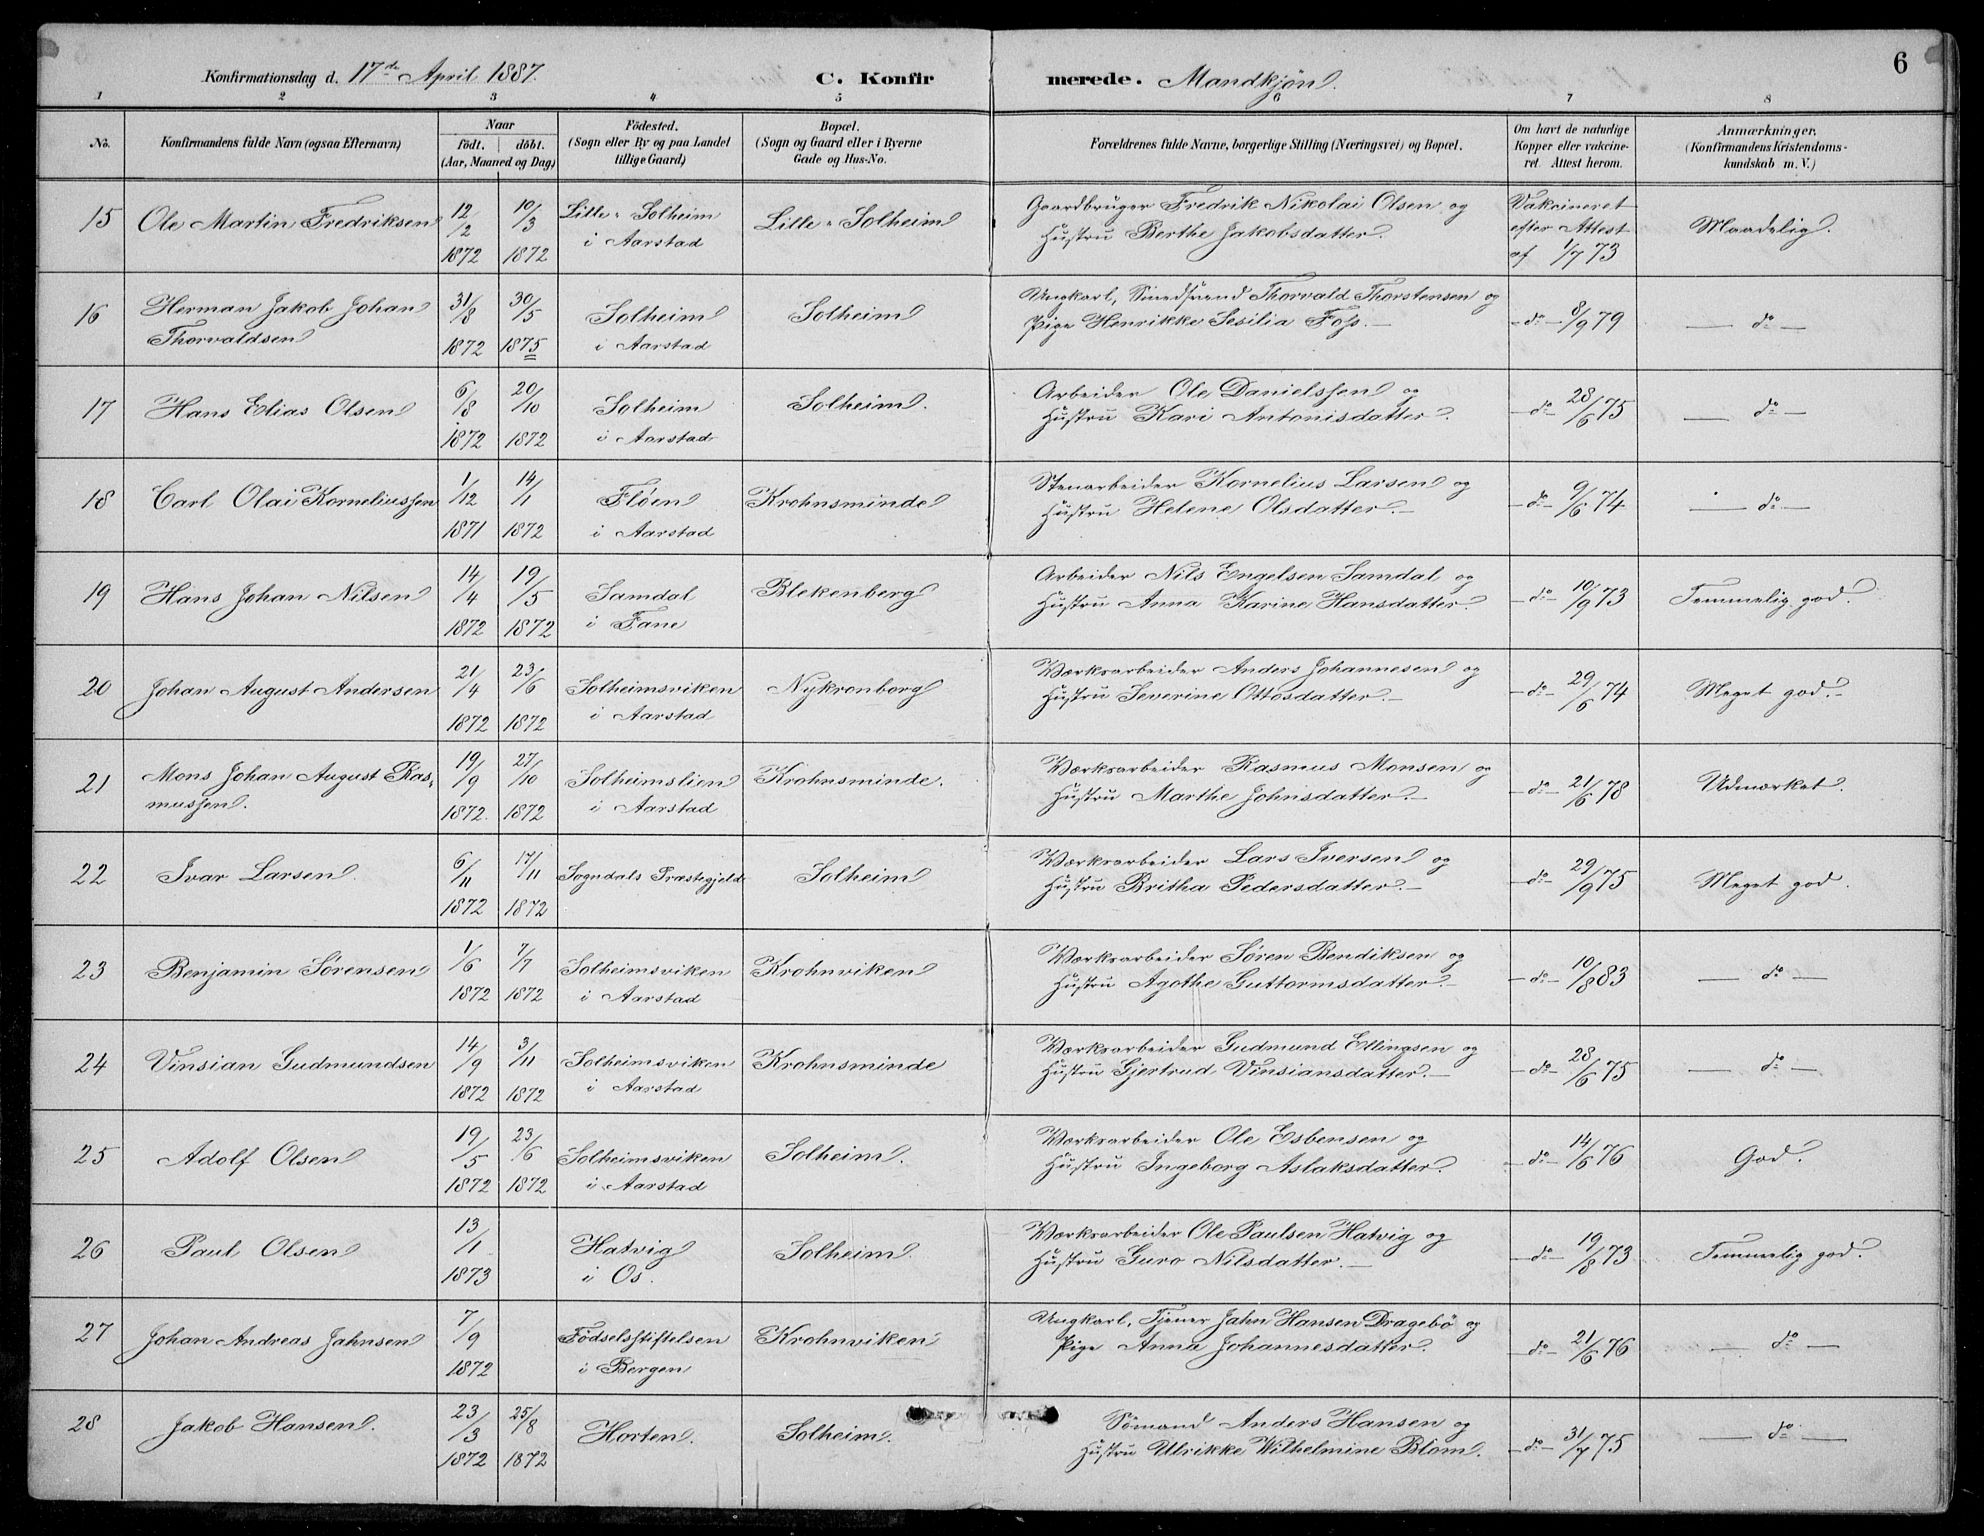 6
Konfirmationsdag d. 17de April 1887. C. Konfirmerede. Mandkjøn.
1 2 3 4 5 6 7 8
No.
Konfirmandens fulde Navn (ogsaa Efternavn)
Naar
født. døbt.
(Aar, Maaned og Dag)
Fødested.
(Sogn eller By og paa Landet
tillige Gaard)
Bopæl.
(Sogn og Gaard eller i Byerne
Gade og Hus-No.
Forældrenes fulde Navne, borgerlige Stilling (Næringsvei) og Bopæl.
Om havt de naturlige
Kopper eller vakcine-
ret. Attest herom.
Anmærkninger.
(Konfirmandens Kristendoms-
kundskab m. V.)
15 Ole Martin Fredriksen 12/2 1872 10/3 1872
Lille-Solheim
i Aarstad
Lille-Solheim
Gaardbruger Fredrik Nikolai Olsen og
Hustru Berthe Jakobsdatter.
Vakcineret
efter Attest
af 1/7 73
Maadelig.
16 Herman Jakob Johan
Thorvaldsen
31/8 1872 30/5 1875
Solheim
i Aarstad
Solheim
Ungkarl, Smedsvend Thorvald Thorstensen og
Pige Henrikke Sesilia Foss.—
-do- 8/9 79
— do —
17 Hans Elias Olsen 6/8 1872 20/10 1872
Solheim
i Aarstad
Solheim.
Arbeider Ole Danielssen og
Hustru Kari Antonisdatter.
-do- 28/6 75
— do —
18 Carl Olai Korneliussen 1/12 1871 14/1 1872
Fløen
i Aarstad
Krohnsminde
Stenarbeider Kornelius Larsen og
Hustru Helene Olsdatter.—
-do- 9/6 74
— do —
19 Hans Johan Nilsen 14/4 1872 19/5 1872
Samdal
i Fane
Blekenberg
Arbeider Nils Engelsen Samdal og
Hustru Anna Karine Hansdatter.
-do- 10/9 73
Temmelig god.
20 Johan August Andersen 21/4 1872 23/6 1872
Solheimsviken
i Aarstad
Nykronborg
Værksarbeider Anders Johannesen og
Hustru Severine Ottosdatter.—
-do- 29/6 74
Meget god.—
21 Mons Johan August Ras-
mussen.
19/9 1872. 27/10 1872
Solheimslien
i Aarstad
Krohnsminde.
Værksarbeider Rasmus Monsen og
Hustru Marthe Johnsdatter.—
-do- 21/6 78
Udmærket.
22 Ivar Larsen. 6/11 1872 17/11 1872
Sogndals Præstegjeld
Solheim
Værksarbeider Lars Iversen og
Hustru Britha Pedersdatter.—
-do- 29/9 75
Meget god.
23 Benjamin Sørensen 1/6 1872 7/7 1872
Solheimsviken
i Aarstad
Krohnviken
Værksarbeider Søren Bendiksen og
Hustru Agathe Guttormsdatter.—
-do- 10/8 83
— do —
24 Vinsian Gudmundsen 14/9 1872 3/11 1872
Solheimsviken
i Aarstad
Krohnsminde
Værksarbeider Gudmund Ellingsen og
Hustru Gjertrud Vinsiansdatter.—
-do- 28/6 75
— do —
25 Adolf Olsen 19/5 1872 23/6 1872
Solheimsviken
i Aarstad
Solheim.
Værksarbeider Ole Esbensen og
Hustru Ingeborg Aslaksdatter.
-do- 14/6 76
God.
26 Paul Olsen 13/1 1873
Hatvig
i Os.
Solheim.
Værksarbeider Ole Paulsen Hatvig og
Hustru Guro Nilsdatter.—
-do- 19/8 73
Temmelig god.
27 Johan Andreas Jahnsen 7/9 1872
Fødselsstiftelsen
i Bergen
Krohnviken
Ungkarl, Tjener Jahn Hansen Dragebø og
Pige Anna Johannesdatter.
-do- 21/6 76
— do —
28 Jakob Hansen. 23/3 1872 25/8 1872
Horten.
Solheim.
Sømand Anders Hansen og
Hustru Ulrikke Wilhelmine Blom.
-do- 31/7 75
— do —